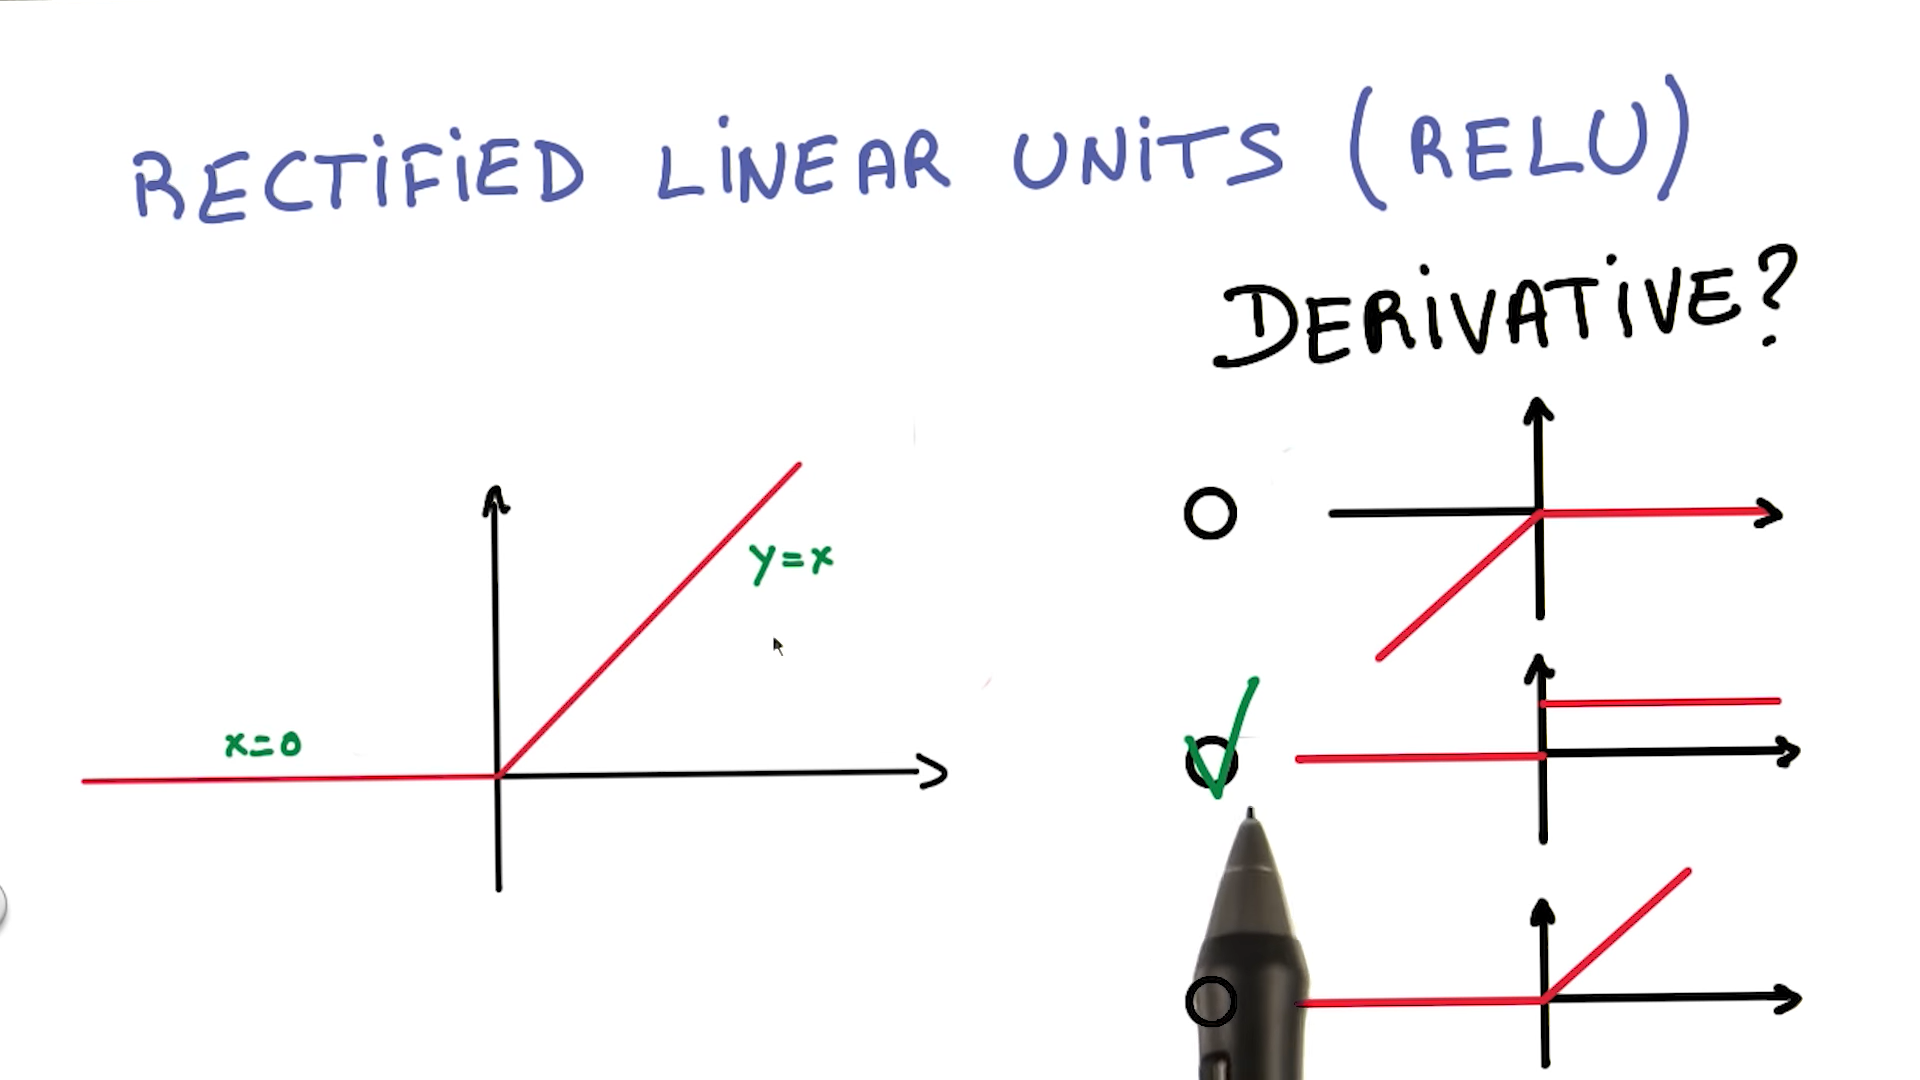 RECTiFiED LiNEAR UNiTS (RELU)
DERiVATiVE?
y=x
x=0